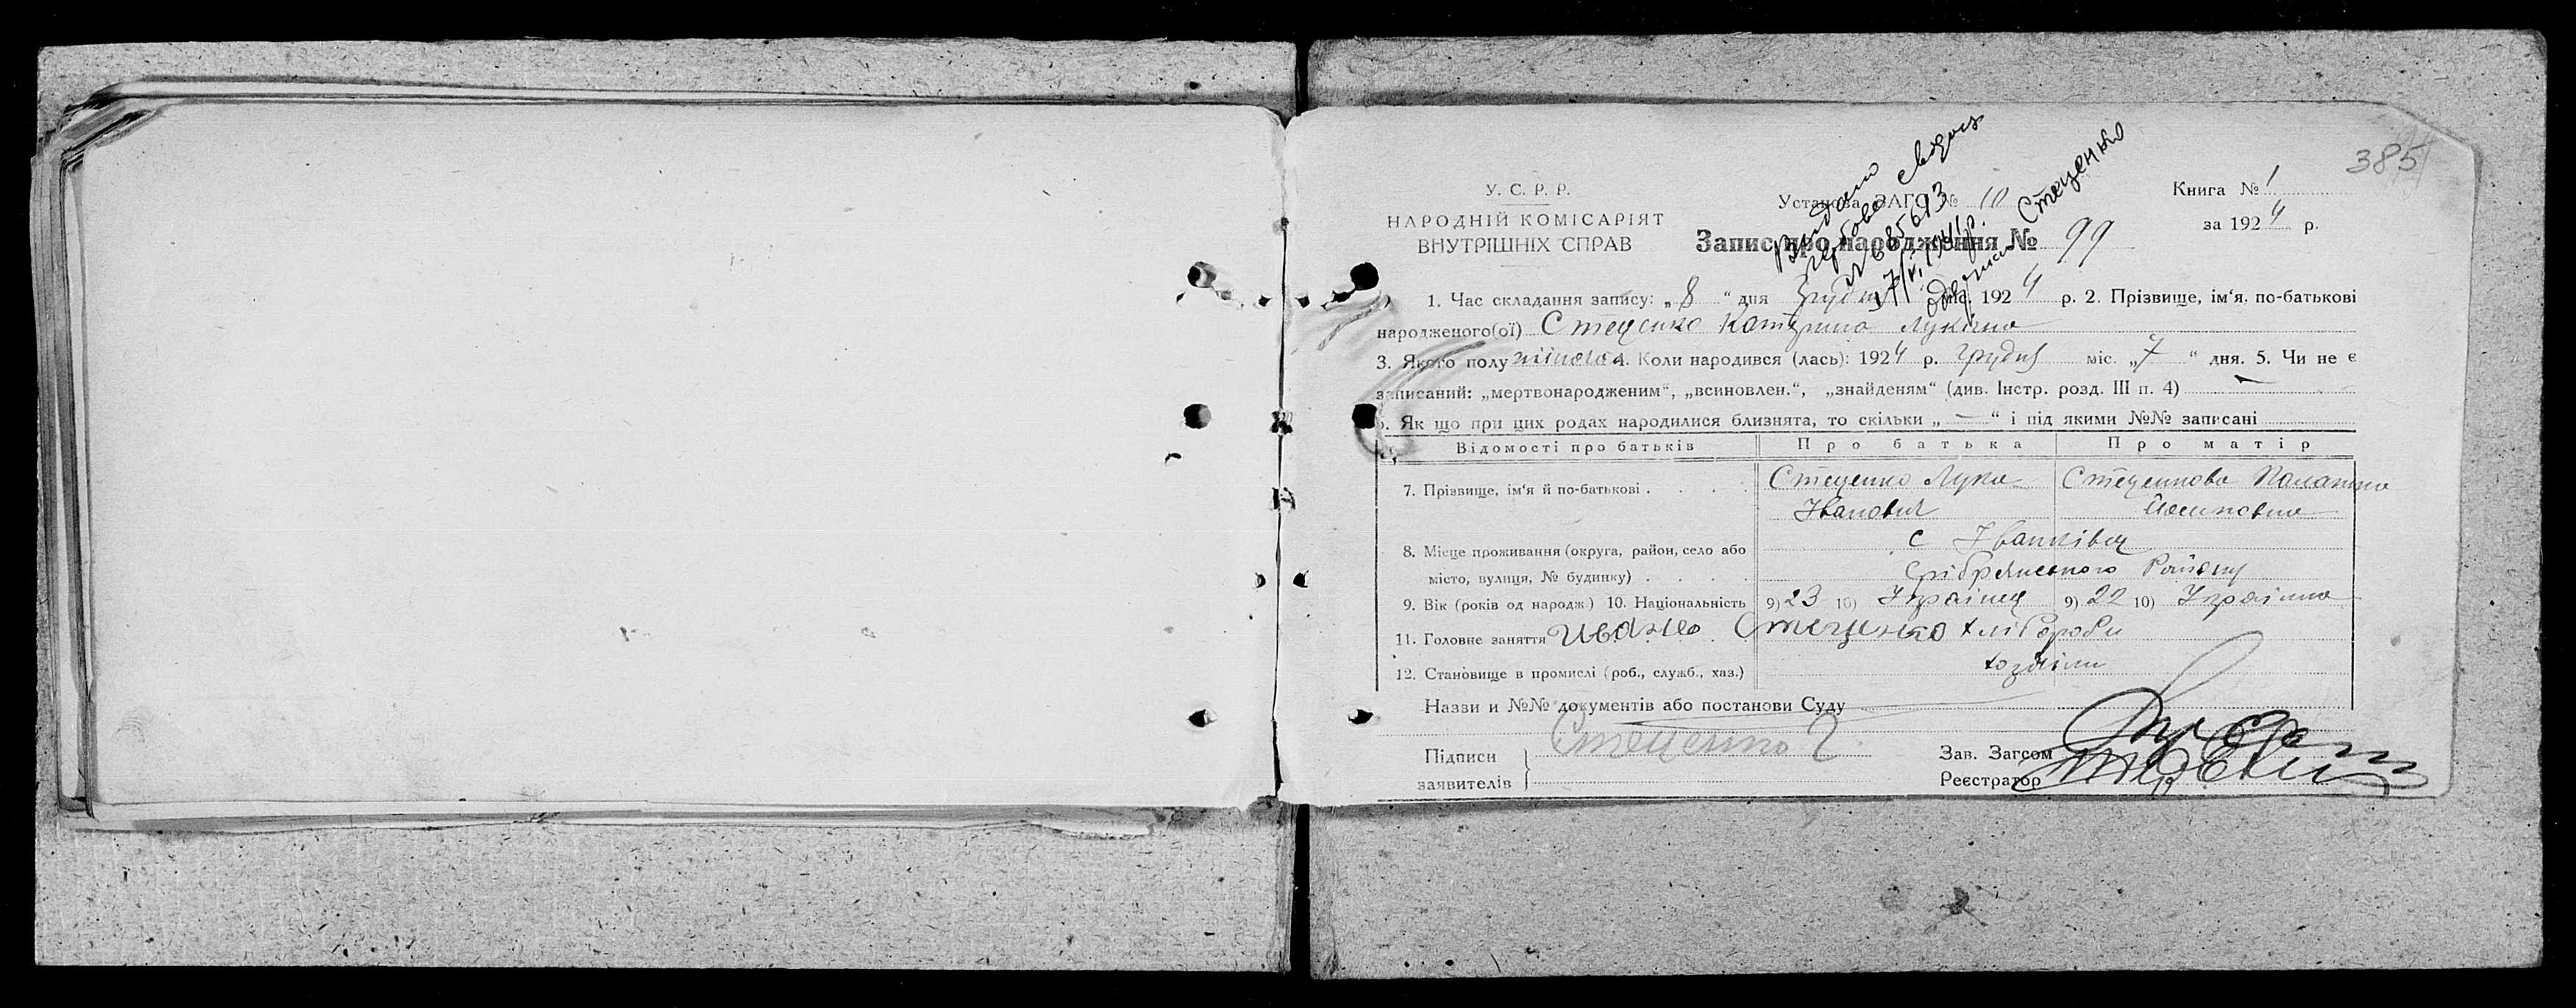 385
У. С. Р. Р.
НАРОДНІЙ КОМІСАРІЯТ
ВНУТРІШНІХ СПРАВ
Установа ЗАГС № 10
Книга № 1
за 1924 р.
Запис про народження № 99
Видано
№ 685693
Стеценко
1. Час складання запису: „8“ дня Грудня міс. 1924 р. 2. Прізвище, ім‘я, по-батькові
народженого(ої) Стеценко Катерина Луківна
3. Якого полу жіночого 4. Коли народився (лась): 1924 р. Грудня міс. „7“ дня. 5. Чи не є
записаний: „мертвонародженим“, „всиновлен.“, „знайденям“ (див. Інстр. розд. III п. 4) —
6. Як що при цих родах народилися близнята, то скільки „—“ і під якими №№ записані
Відомості про батьків Про батька Про матір
7. Прізвище, ім‘я й по-батькові . . . . Стеценко Лука Стеценкова
Іванович
8. Місце проживання (округа, район, село або с Іванківці
місто, вулиця, № будинку) . . . . Срібрянського Району
9. Вік (років од народж.) 10. Національність 9) 23 10) Українец 9) 22 10) Українка
11. Головне заняття Стеценко хлібороби
12. Становище в промислі (роб., служб., хаз.) хозяіни
Назви и №№ документів або постанови Суду
Підписи Стеценко
заявителів
Зав. Загсом
Реєстратор